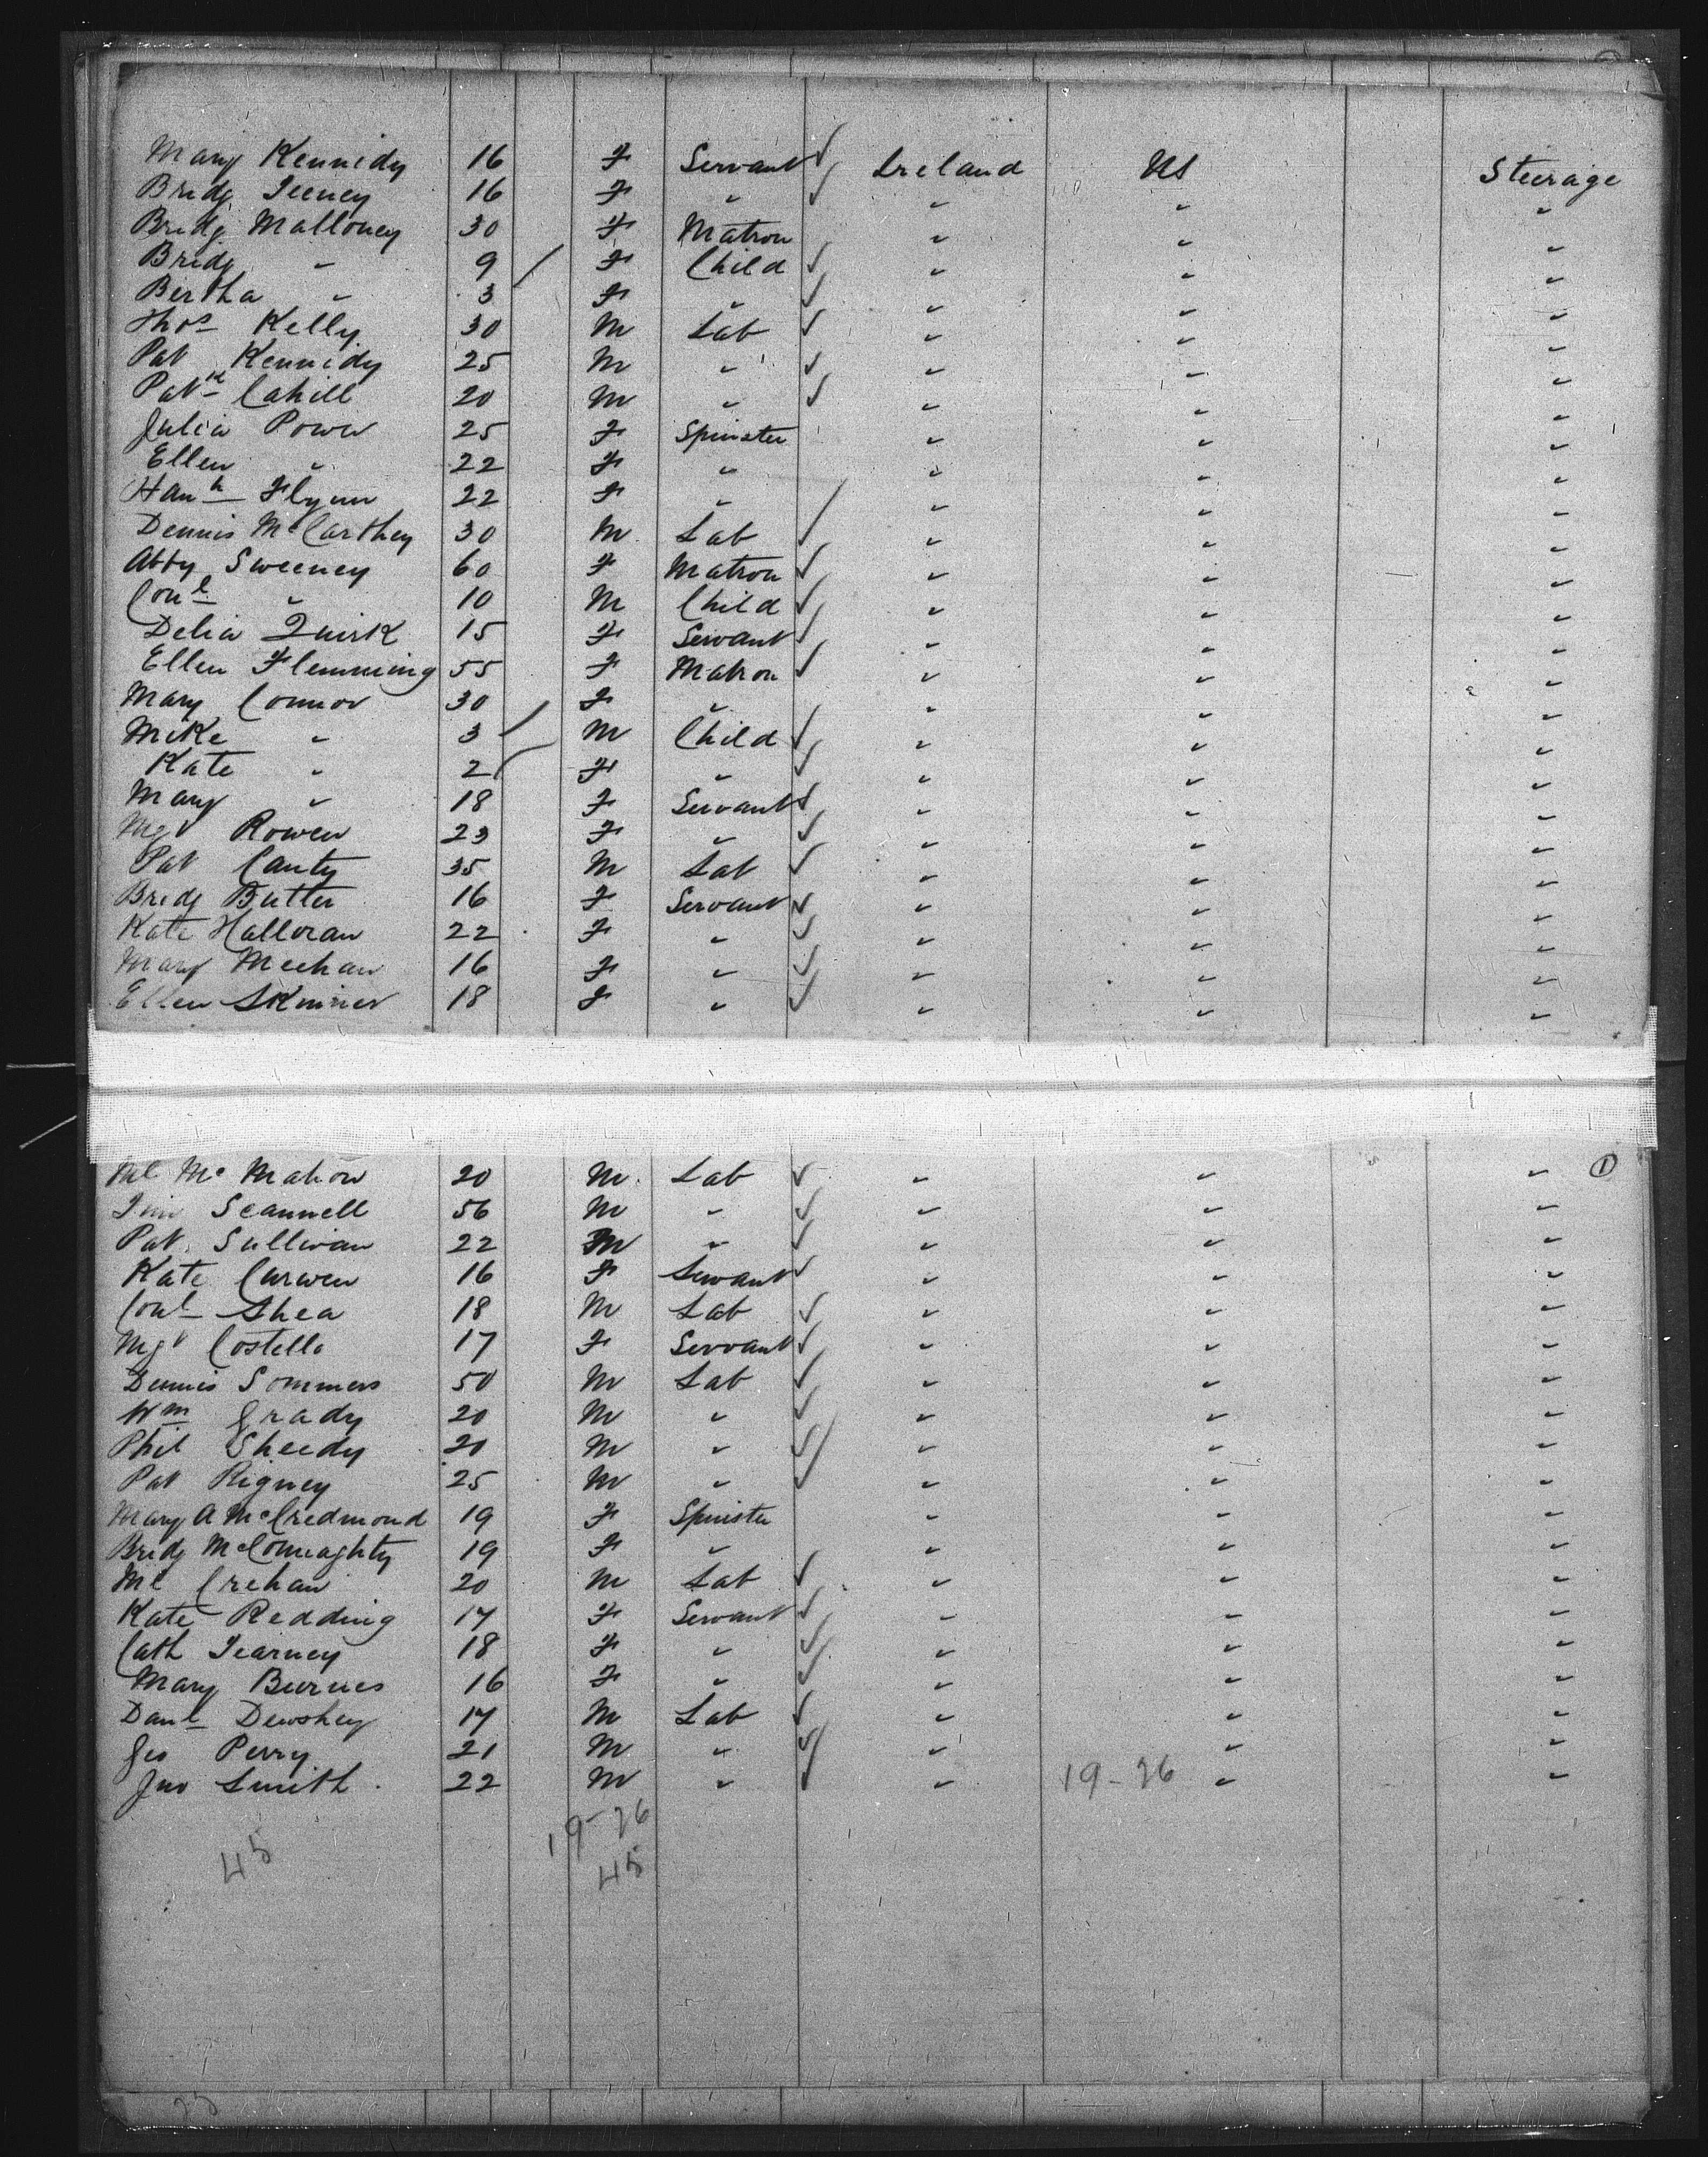 Mary Kennidy 16 F Servant ✓ Ireland US Steerage
Bridg Feeney 16 F " ✓ " " "
Bridg Malloney 30 F Matron " " "
Bridg " 9 / F Child ✓ " " "
Bertha " 3 F " ✓ " " "
Thos Kelly 30 M Lab ✓ " " "
Pat Kennidy 25 M " ✓ " " "
Patk Cahill 20 M " ✓ " " "
Julia Power 25 F Spinster " " "
Ellen " 22 F " " " "
Hanh Flynn 22 F " " " "
Dennis McCarthey 30 M Lab ✓ " " "
Abby Sweeney 60 F Matron ✓ " " "
Conl " 10 M Child ✓ " " "
Delia Quirk 15 F Servant ✓ " " "
Ellen Flemming 55 F Matron ✓ " " "
Mary Connor 30 F " " " "
Mike " 3 / M Child ✓ " " "
Kate " 2 / F " ✓ " " "
Mary " 18 F Servant ✓ " " "
Mgt Rowen 23 F " ✓ " " "
Pat Canty 35 M Lab ✓ " " "
Bridg Butler 16 F Servant ✓ " " "
Kate Halloran 22 F " ✓ " " "
Mary Meehan 16 F " ✓ " " "
Ellen Skinner 18 F " ✓ " " "
Ml McMahon 20 M Lab ✓ " " " 1
Tim Scannell 56 M " ✓ " " "
Pat Sullivan 22 M " ✓ " " "
Kate Curwen 16 F Servant ✓ " " "
Conl Shea 18 M Lab ✓ " " "
Mgt Costello 17 F Servant ✓ " " "
Dennis Sommers 50 M Lab ✓ " " "
Wm Grady 20 M " ✓ " " "
Phil Sheedy 20 M " ✓ " " "
Pat Rigney 25 M " ✓ " " "
Mary A McCredmond 19 F Spinster " " "
Bridg McConnaghty 19 F " " " "
Ml Crehan 20 M Lab ✓ " " "
Kate Redding 17 F Servant ✓ " " "
Cath Tearney 18 F " ✓ " " "
Mary Burnes 16 F " ✓ " " "
Danl Dewshey 17 M Lab ✓ " " "
Geo Perry 21 M " ✓ " " "
Jno Smith 22 M " ✓ " 19-26 " "
19-26
45 45